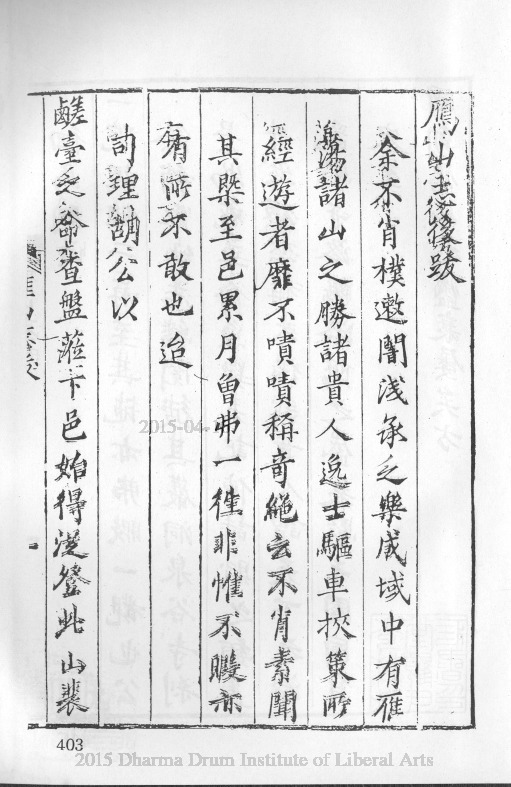 鴈山志後跋
余不肖樸遬闇淺承乏樂成域中有雁
蕩諸山之勝諸貴人逸士驅車挾策所
經遊者靡不嘖嘖稱奇絕云不肖素聞
其槩至邑累月曾弗一往非惟不暇亦
有所不敢也迨
司理胡公以
鹺臺之命查盤蒞下邑始得從登此山裴
403
2015-04-
2015 Dharma Drum Institute of Liberal Arts